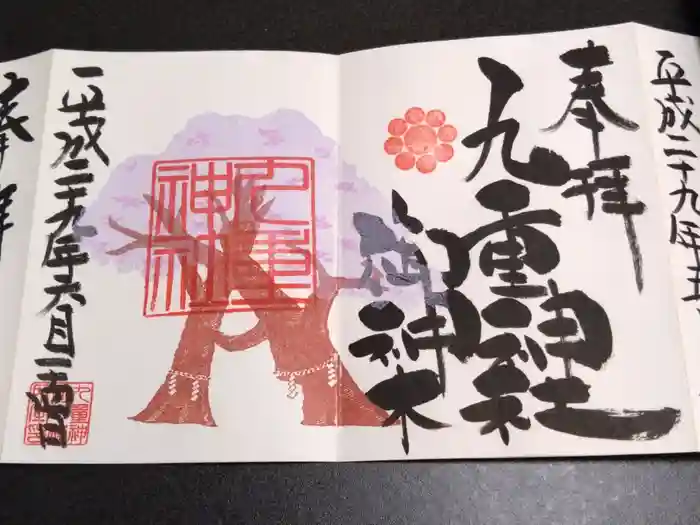 平成二十九年
奉拝
九重神社
御神木
九重
神社
平成二十九年六月
九重神
奉拝